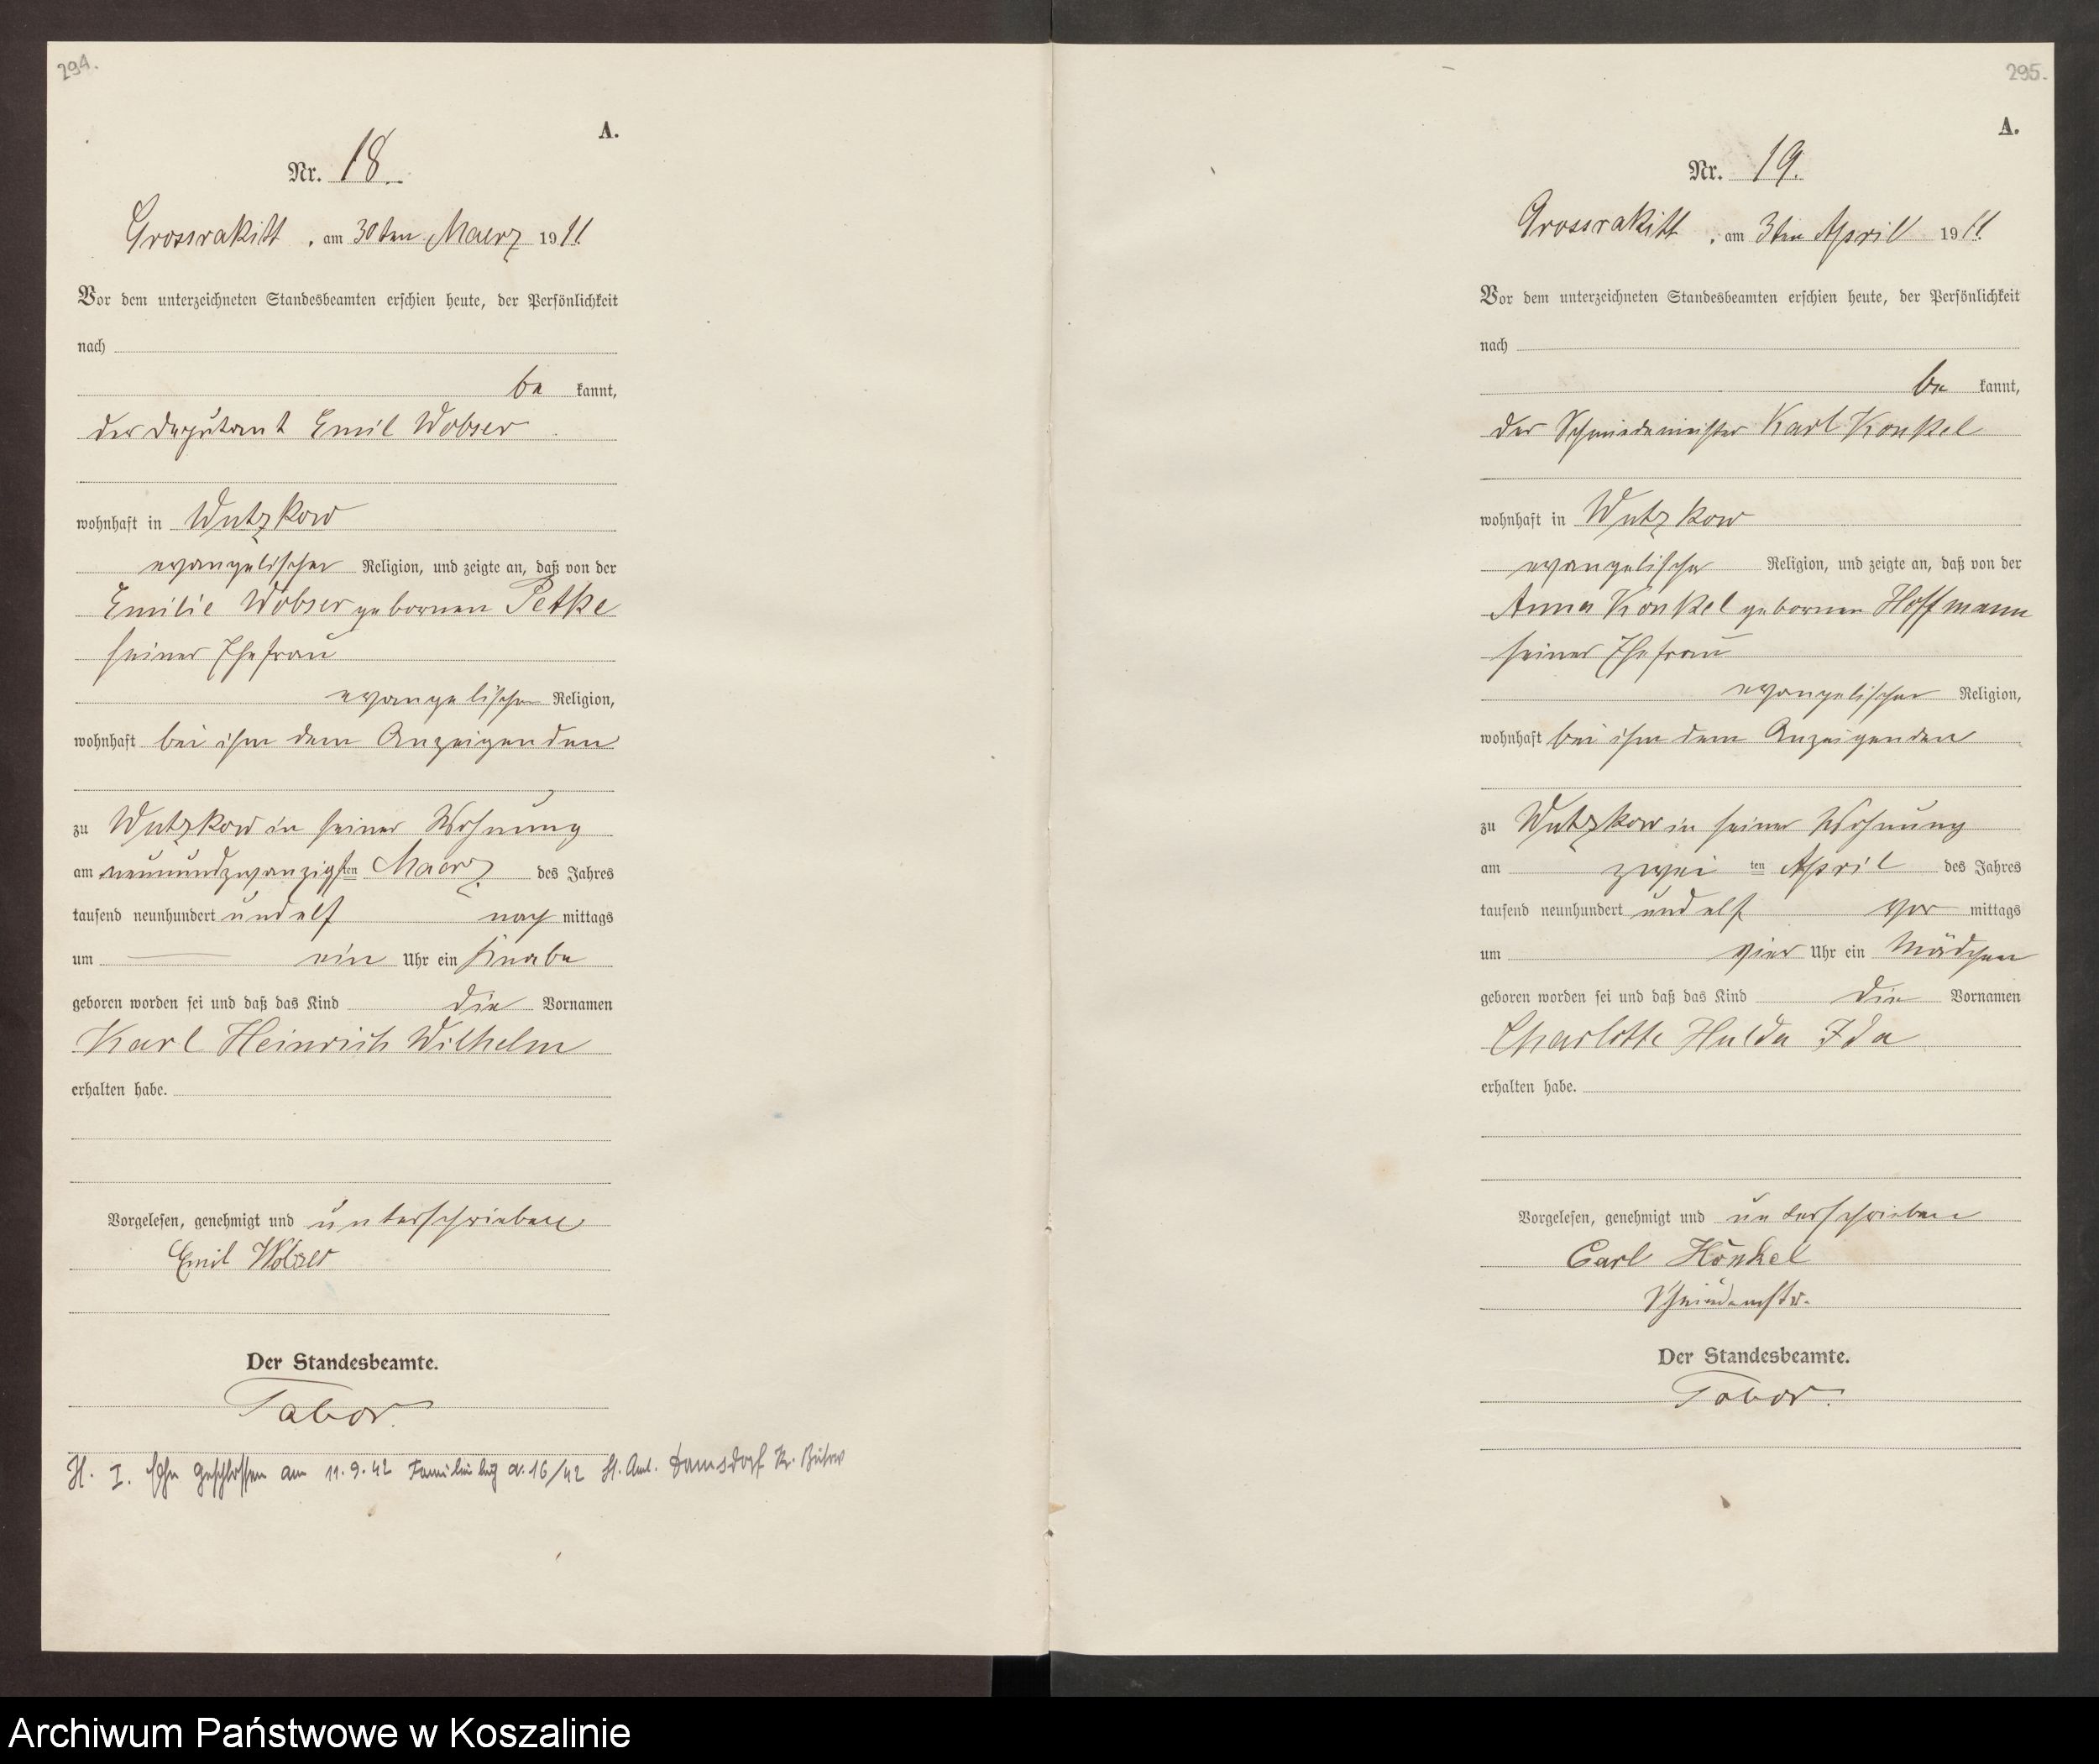 294.
A.
Nr. 18.
Grossrakitt, am 30ten Maerz 1911.
Vor dem unterzeichneten Standesbeamten erschien heute, der Persönlichkeit
nach
be kannt,
der Deputant Emil Wobser
wohnhaft in Wutzkow
evangelischer Religion, und zeigte an, daß von der
Emilie Wobser gebornen Petke
seiner Ehefrau
evangelischer Religion,
wohnhaft bei ihm dem Anzeigenden
zu Wutzkow in seiner Wohnung
am neunundzwanzigsten Maerz des Jahres
tausend neunhundert und elf nach mittags
um ein Uhr ein Knabe
geboren worden sei und daß das Kind die Vornamen
Karl Heinrich Wilhelm
erhalten habe.
Vorgelesen, genehmigt und unterschrieben
Emil Wobser
Der Standesbeamte.
Tabor.
H. I. Ehe geschlossen am 11.9.42 16/42 St. Amt. Damsdorf Kr. Bütow
295.
A.
Nr. 19.
Grossrakitt, am 3ten April 1911.
Vor dem unterzeichneten Standesbeamten erschien heute, der Persönlichkeit
nach
be kannt,
der Schmiedemeister Karl Konkel
wohnhaft in Wutzkow
evangelischer Religion, und zeigte an, daß von der
Anna Konkel gebornen Hoffmann
seiner Ehefrau
evangelischer Religion,
wohnhaft bei ihm dem Anzeigenden
zu Wutzkow in seiner Wohnung
am zwei ten April des Jahres
tausend neunhundert und elf vor mittags
um vier Uhr ein Mädchen
geboren worden sei und daß das Kind die Vornamen
Charlotte Hulda Ida
erhalten habe.
Vorgelesen, genehmigt und unterschrieben
Carl Konkel
Schmiedemstr.
Der Standesbeamte.
Tabor.
Archiwum Państwowe w Koszalinie